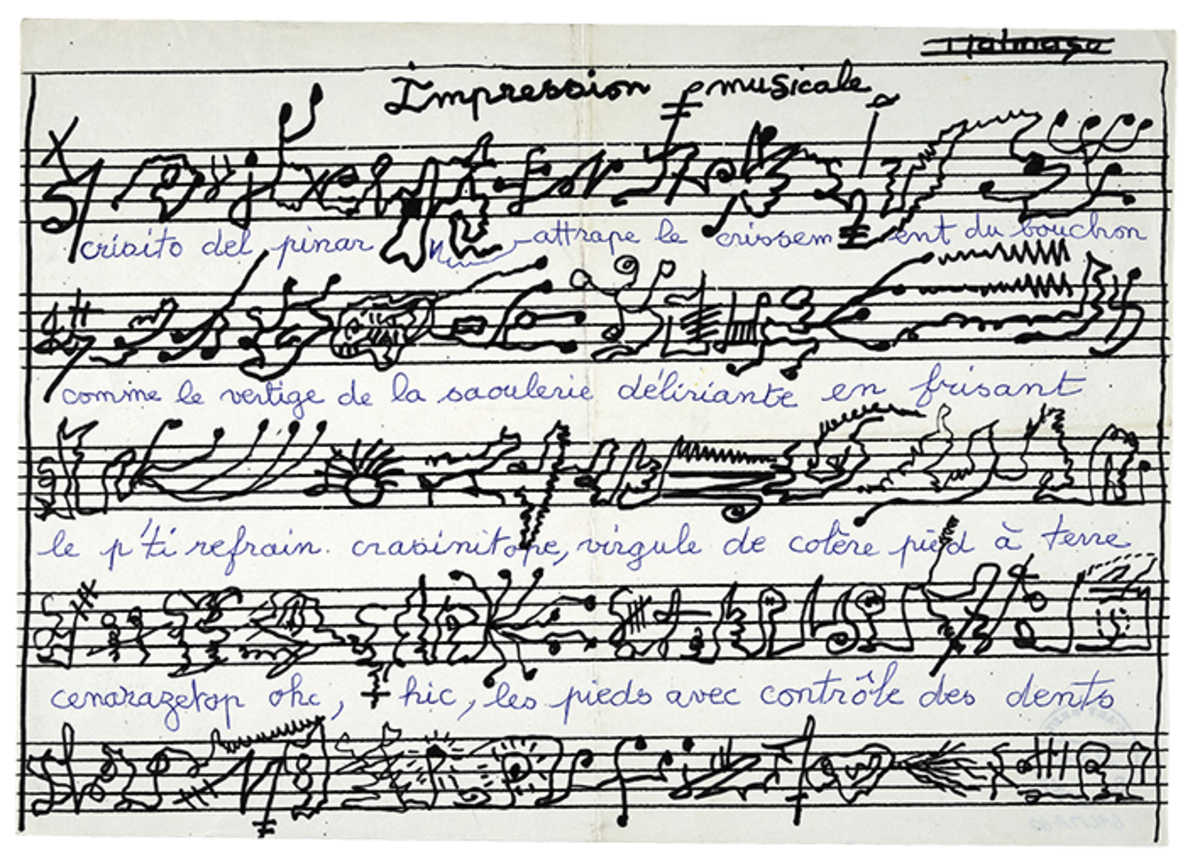 Dalmaso
Impression musicale
crisito del pinar attrape le crissement du bouchon
comme le vertige de la saoulerie déliriante en frisant
le p'ti refrain. crasinitohe, virgule de colère pied à terre
cenarazetop ohc, hic, les pieds avec contrôle des dents